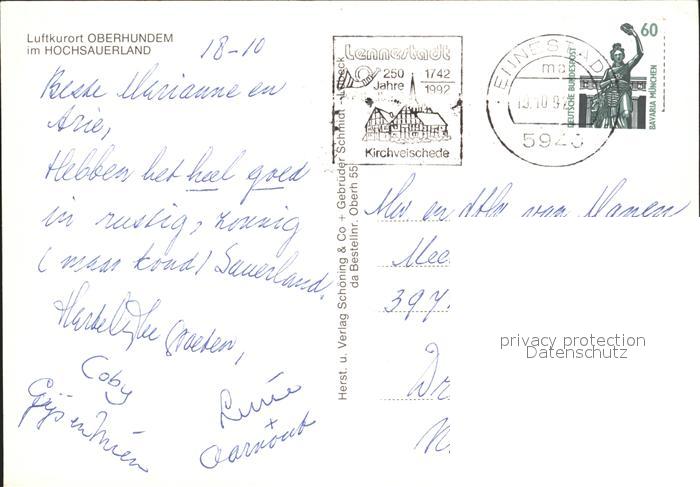 Luftkurort OBERHUNDEM
im HOCHSAUERLAND
18-10
Beste Marianne en
Arie,
Hebben het heel goed
in rustig, zonnig
(maar koud) Sauerland.
Hartelijke Groeten,
Coby
Gijs en Mien
+
Aarnout
Herst. u. Verlag Schöning & Co + Gebrüder Schmidt -
da Bestellnr. Oberh 55
Lennestadt
250 1742
Jahre 1992
Kirchveischede
LENNESTADT
10.9
594
60
DEUTSCHE BUNDESPOST
BAVARIA MÜNCHEN
Mw en dhr van Manen
Mee
397.
Dr
N.
privacy protection
Datenschutz